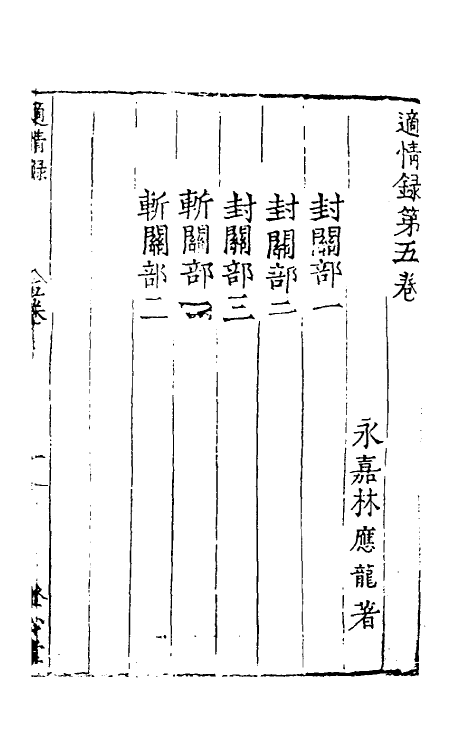 適情録第五卷
永嘉林應龍著
封關部一
封關部二
封關部三
斬關部一
斬關部二
適情録
五卷
一